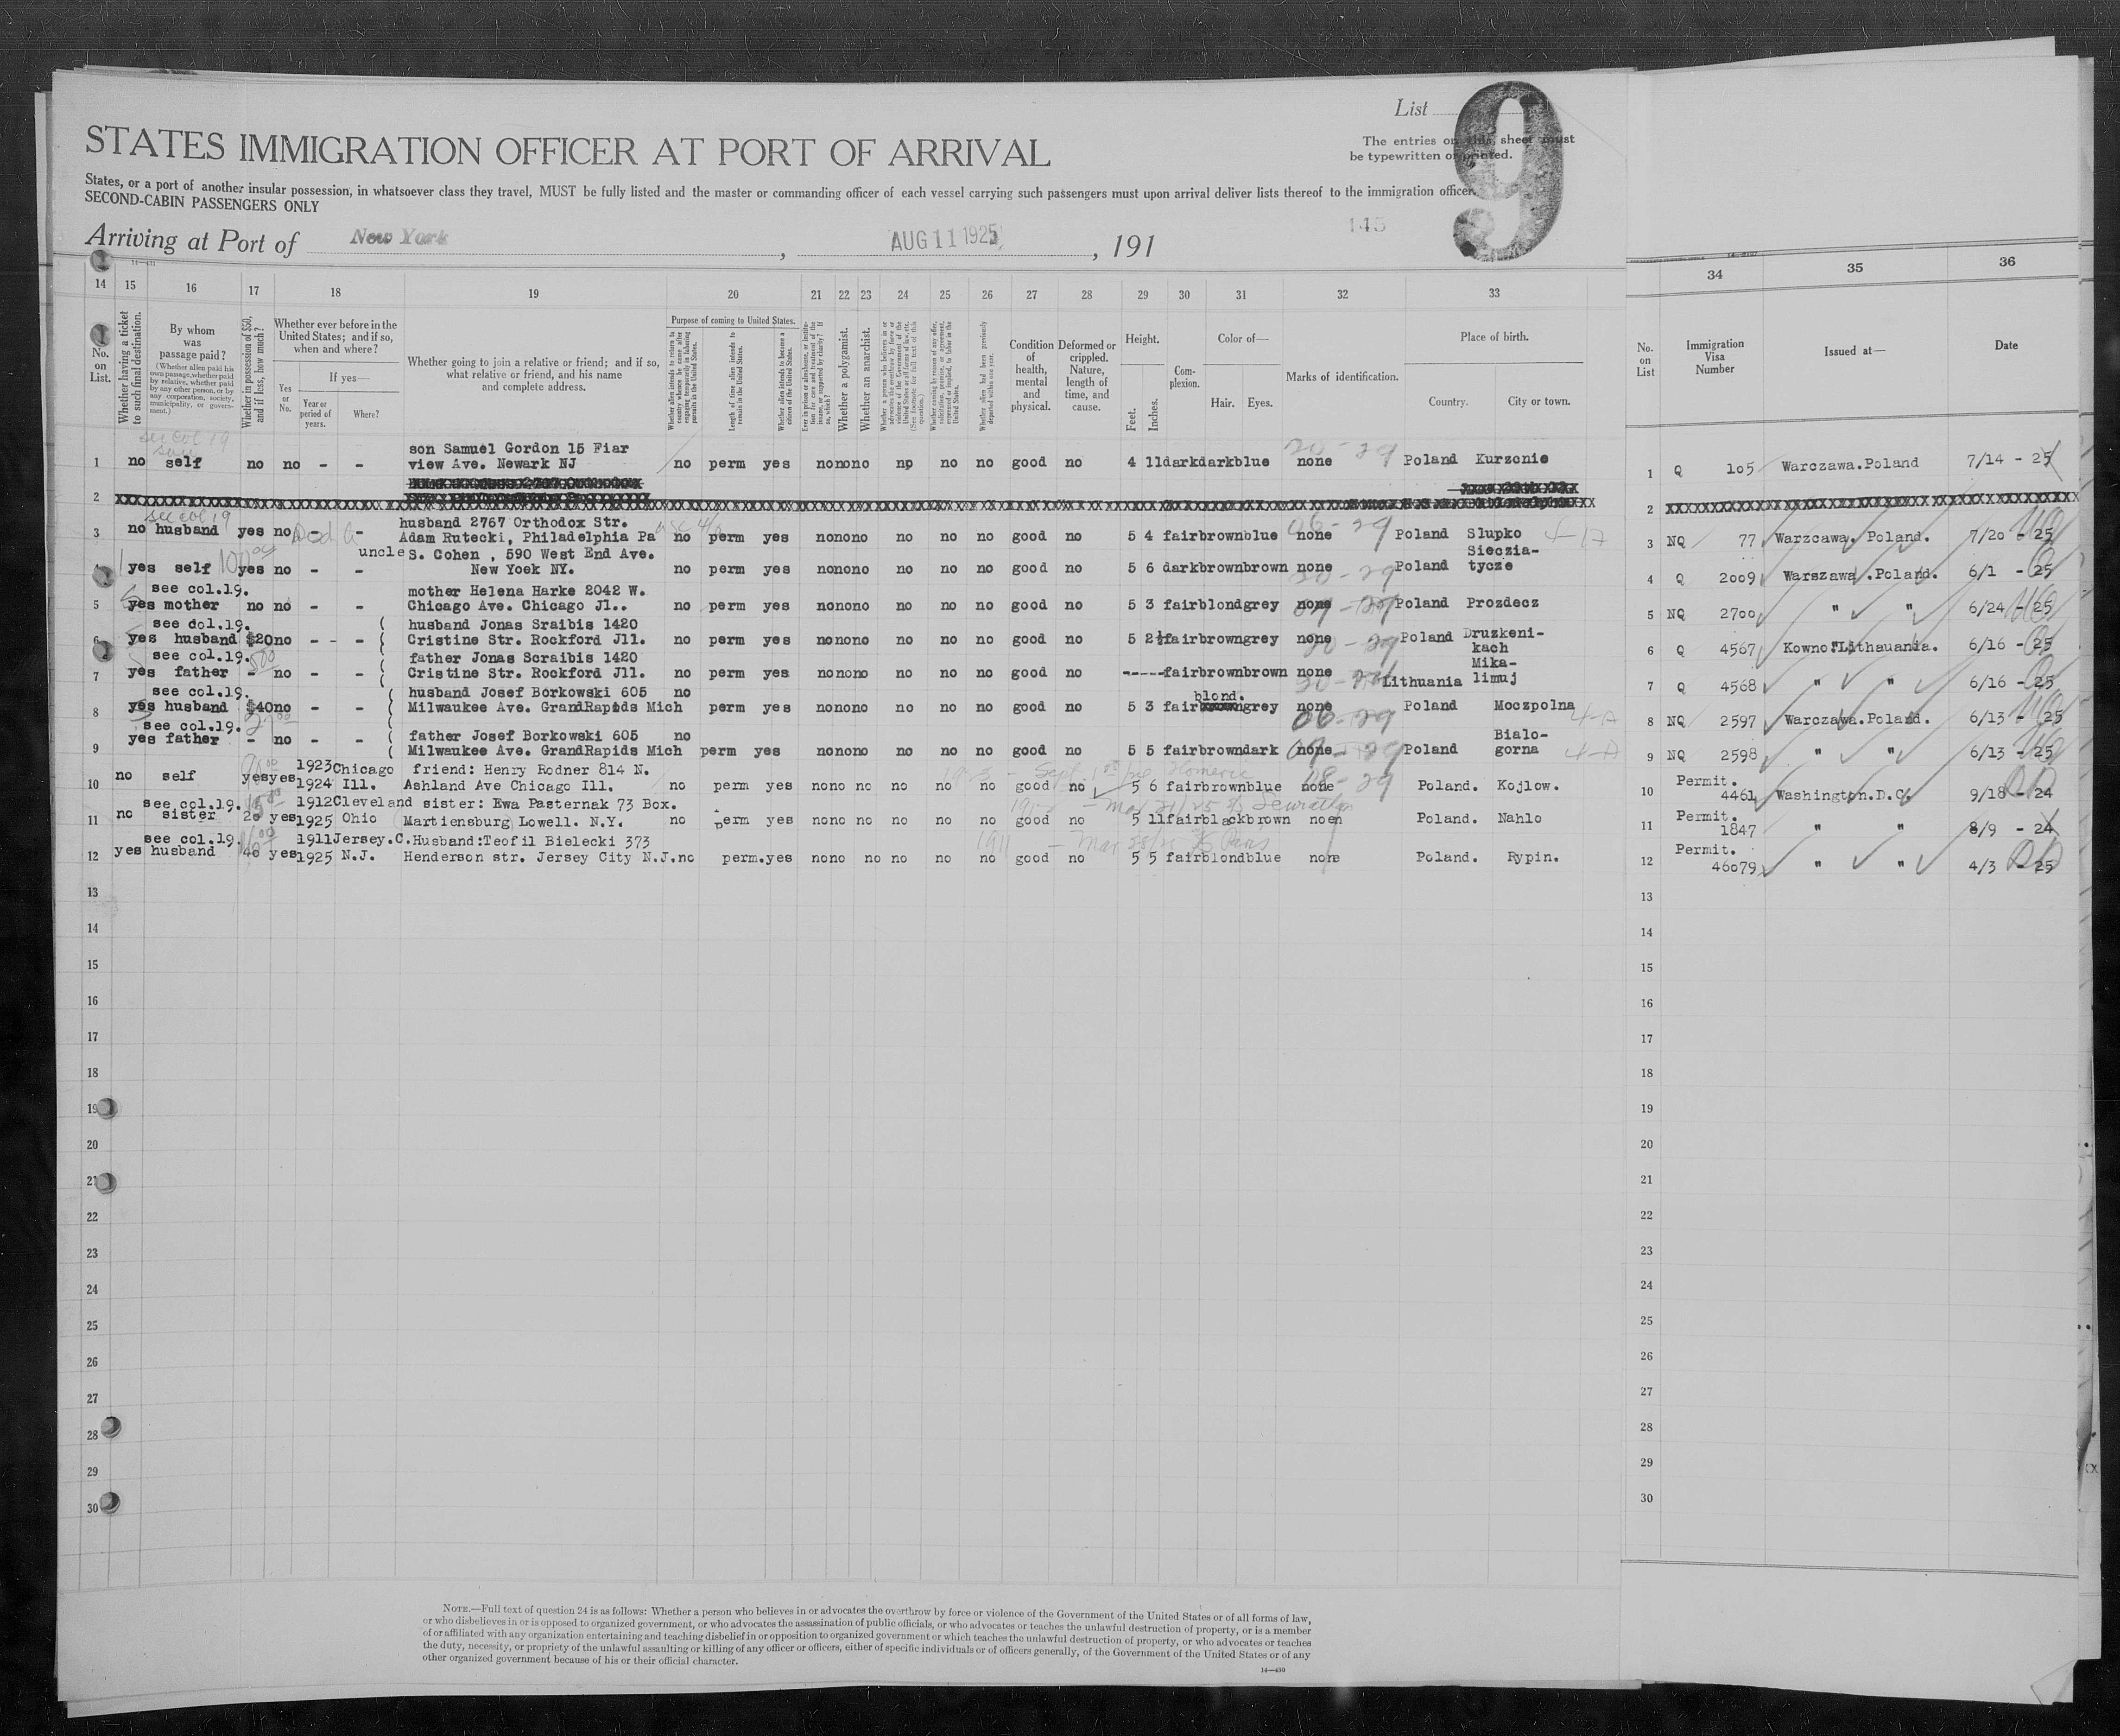 List 9
STATES IMMIGRATION OFFICER AT PORT OF ARRIVAL
The entries on this sheet must
be typewritten or printed.
States, or a port of another insular possession, in whatsoever class they travel, MUST be fully listed and the master or commanding officer of each vessel carrying such passengers must upon arrival deliver lists thereof to the immigration officer.
SECOND-CABIN PASSENGERS ONLY
145
Arriving at Port of New York, AUG 11 1925, 191
14 15 16 17 18 19 20 21 22 23 24 25 26 27 28 29 30 31 32 33 34 35 36
No. on List.
Whether having a ticket to such final destination.
By whom was passage paid?
(Whether alien paid his own passage, whether paid by relative, whether paid by any other person, or by any corporation, society, municipality, or government.)
Whether in possession of $50, and if less, how much?
Whether ever before in the United States; and if so, when and where?
Yes or No.
If yes—
Year or period of years.
Where?
Whether going to join a relative or friend; and if so, what relative or friend, and his name and complete address.
Purpose of coming to United States.
Whether alien intends to return to country whence he came after engaging temporarily in laboring pursuits in the United States.
Length of time alien intends to remain in the United States.
Whether alien intends to become a citizen of the United States.
Whether a polygamist.
Whether an anarchist.
Condition of health, mental and physical.
Deformed or crippled. Nature, length of time, and cause.
Height.
Feet. Inches.
Complexion.
Color of—
Hair. Eyes.
Marks of identification.
Place of birth.
Country. City or town.
No. on List
Immigration Visa Number
Issued at—
Date
see col 19
son Samuel Gordon 15 Fiar
1 no self no no - - view Ave. Newark NJ no perm yes no no no no no no good no 4 11 dark dark blue none Poland Kurzonie 1 Q 105 Warczawa.Poland 7/14 - 25
2 2
see col 19
husband 2767 Orthodox Str.
3 no husband yes no - - Adam Rutecki, Philadelphia Pa no perm yes no no no no no no good no 5 4 fair brown blue none Poland Slupko 3 NQ 77 Warzcawa. Poland. 7/20 - 25
uncle S. Cohen , 590 West End Ave. Sieczia-
4 yes self yes no - - New Yoek NY. no perm yes no no no no no no good no 5 6 dark brown brown none Poland tycze 4 Q 2009 Warszawa .Poland. 6/1 - 25
see col.19. mother Helena Harke 2042 W.
5 yes mother no no - - Chicago Ave. Chicago Jl.. no perm yes no no no no no no good no 5 3 fair blond grey none Poland Prozdecz 5 NQ 2700 " " 6/24 - 25
see dol.19. husband Jonas Sraibis 1420 Druzkeni-
6 yes husband $20 no - - Cristine Str. Rockford Jll. no perm yes no no no no no no good no 5 2½ fair brown grey none Poland kach 6 Q 4567 Kowno.Lithauania. 6/16 - 25
see col.19. father Jonas Scraibis 1420 Mika-
7 yes father - no - - Cristine Str. Rockford Jll. no perm yes no no no no no no good no ----- fair brown brown none Lithuania limuj 7 Q 4568 " " 6/16 - 25
see col.19. husband Josef Borkowski 605 no blond.
8 yes husband $40 no - - Milwaukee Ave. GrandRapids Mich perm yes no no no no no no good no 5 3 fair grey none Poland Moczpolna 8 NQ 2597 Warczawa.Poland. 6/13 - 25
see col.19. father Josef Borkowski 605 no Bialo-
9 yes father - no - - Milwaukee Ave. GrandRapids Mich perm yes no no no no no no good no 5 5 fair brown dark none Poland gorna 9 NQ 2598 " " 6/13 - 25
1923 Chicago friend: Henry Rodner 814 N. Permit.
10 no self yes yes 1924 Ill. Ashland Ave Chicago Ill. no perm yes no no no no no no good no 5 6 fair brown blue none Poland. Kojlow. 10 4461 Washington.D.C. 9/18 - 24
see col.19. 1912 Cleveland sister: Ewa Pasternak 73 Box. Permit.
11 no sister 20 yes 1925 Ohio Martiensburg Lowell. N.Y. no perm yes no no no no no no good no 5 11 fair black brown noen Poland. Nahlo 11 1847 " " 8/9 - 24
see col.19. 1911 Jersey.C. Husband:Teofil Bielecki 373 Permit.
12 yes husband 40 yes 1925 N.J. Henderson str. Jersey City N.J. no perm. yes no no no no no no good no 5 5 fair blond blue none Poland. Rypin. 12 46079 " " 4/3 - 25
13 13
14 14
15 15
16 16
17 17
18 18
19 19
20 20
21 21
22 22
23 23
24 24
25 25
26 26
27 27
28 28
29 29
30 30
NOTE.—Full text of question 24 is as follows: Whether a person who believes in or advocates the overthrow by force or violence of the Government of the United States or of all forms of law,
or who disbelieves in or is opposed to organized government, or who advocates the assassination of public officials, or who advocates or teaches the unlawful destruction of property, or is a member
of or affiliated with any organization entertaining and teaching disbelief in or opposition to organized government or which teaches the unlawful destruction of property, or who advocates or teaches
the duty, necessity, or propriety of the unlawful assaulting or killing of any officer or officers, either of specific individuals or of officers generally, of the Government of the United States or of any
other organized government because of his or their official character.
14—430